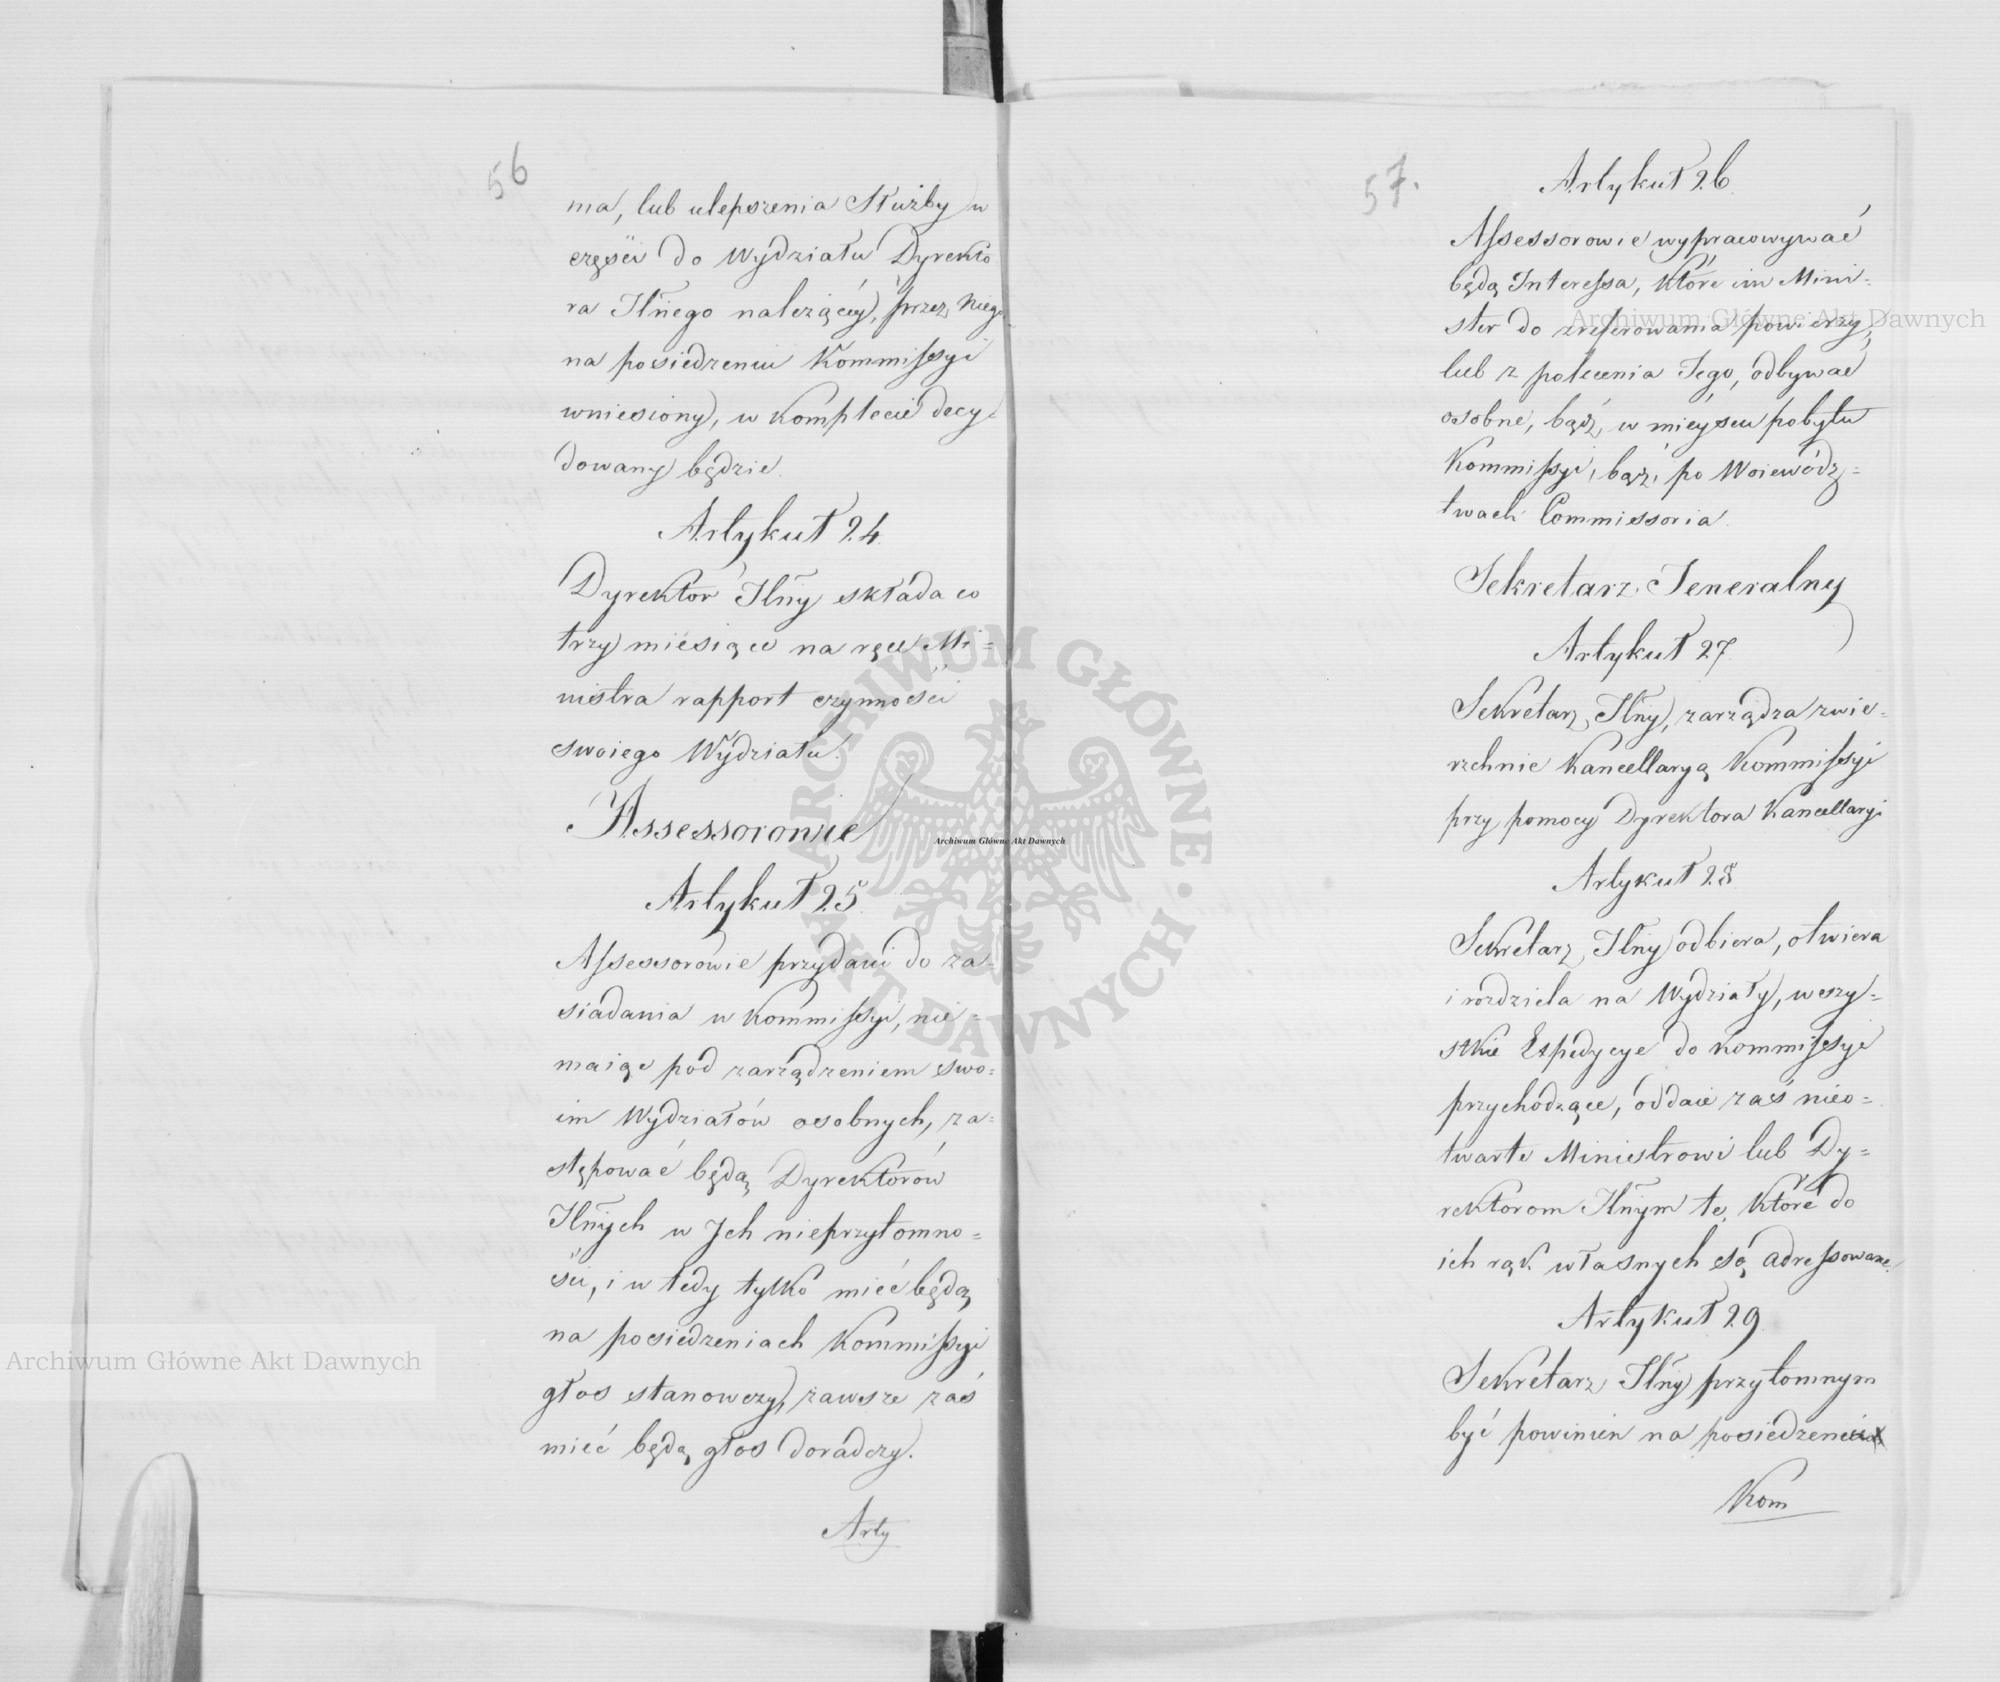 56
ma, lub ulepszenia Służby w
częsci do Wydziału Dyrekto
ra Jłnego należącey, przez Niego
na posiedzeniu Kommissyi
wniesiony, w Komplecie decy=
dowany będzie.
Artykuł 24
Dyrektor Jłny składa co
trzy miesiące na ręce Mi=
nistra rapport czynności
swoiego Wydziału.
Assessorowie
Artykuł 25
Assessorowie przydani do za=
siadania w Kommissyi, nie=
maiąc pod zarządzeniem swo=
im Wydziałów osobnych, za=
stępować będą Dyrektorów
Jłnych w Jch nieprzytomno=
ści, i w tedy tylko mieć będą
na posiedzeniach Kommissyi
głos stanowczy, zawsze zaś
mieć będą głos doradczy.
Arty
57.
Artykuł 26
Assessorowie wypracowywać
będą Interessa, które im Mini=
ster do zreferowania powierzy,
lub z polecenia Jego, odbywać
osobne, bądź, w mieyscu pobytu
Kommissyi, bądź, po Woiewódz=
twach Commissoria.
Sekretarz Jeneralny
Artykuł 27
Sekretarz Jłny, zarządza zwie=
rzchnie Kancellaryą Kommissyi
przy pomocy Dyrektora Kancellaryi
Artykuł 28
Sekretarz Jłny odbiera, otwiera
i rozdziela na Wydziały, wszy=
stkie Expedycye do Kommissyi
przychodzące, oddaie zaś nieo=
twarte Ministrowi lub Dy=
rektorom Jłnym te, które do
ich rąk własnych są adressowane.
Artykuł 29
Sekretarz Jłny przytomnym
być powinien na posiedzeniach
Kom
Archiwum Główne Akt Dawnych
Archiwum Główne Akt Dawnych
Archiwum Główne Akt Dawnych
ARCHIWUM GŁÓWNE · AKT DAWNYCH ·